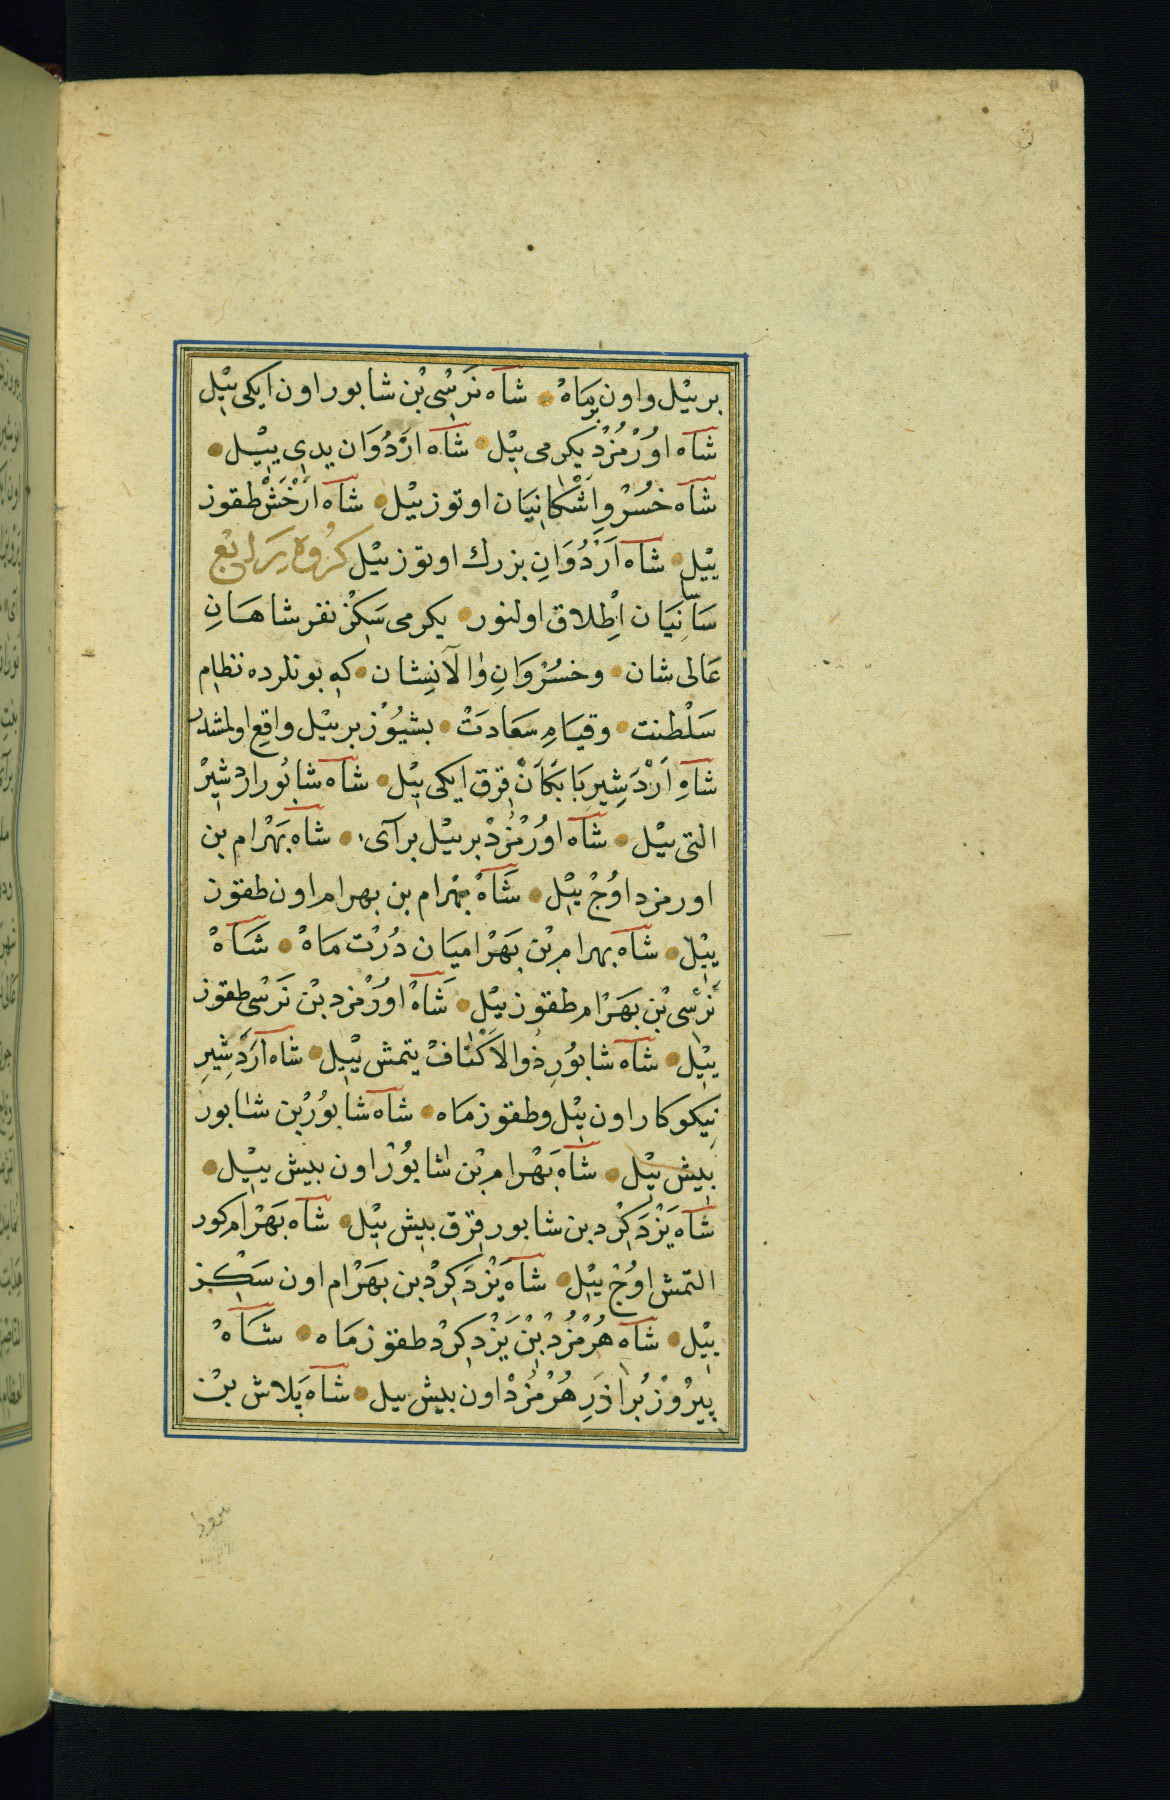 بر ییْل و اون بِرمَاهْ شاه نَرْسْی بْن شابور اون ایکی ییْل
شاه اوُرْمُزْد یکرمی ییْل شاه ارْدُوَان یدی ییْل
شاه خسُرْو اَشْكانِیَان اوتوز ییْل شاه اَرْخَشْ طقوز
ییْل شاه اَرْدُوَانِ بزرك اوتوز ییْل كرُوهِ رابع
سَاسَانِیَان اِطْلاق اولنور یكرمی سَكِزْ نفر شاهَانِ
عَالی شان وخسُرْوَانِ والاَنِشان كه بونلرده نظام
سَلْطنت وقیَامِ سَعَادَتْ بشیُوْز بر ییْل واقع اولمشدر
شاهِ اَرْدَشِیرِ بَابَكَانْ قرق ایكی ییْل شاه شابُور اردشیرْ
التی ییْل شاه اوُرْمُزْدْ بر ییْل بر آی شاه بَهْرام بن
اورمزد اوُجْ ییْل شَاهْ بهرام بن بهرام اون طقوز
ییْل شاه بهرام بْن بَهْرامیَان دُرْت مَاهْ شَاهْ
نَرْسْی بْن بهَرْام طقوز ییْل شَاهْ اوُرْمزد بْن نَرْسْی طقوز
ییْل شاه شابوُرِ ذُوالاَكْتَافْ یتمش ییْل شاه اَرْدَشِیرِ
نِیكوكار اون ییْل و طقوز مَاه شاه شابوُرْ بْن شابور
بیش ییْل شاه بَهْرام بْن شابوُرْ اون بیش ییْل
شاه یَزْدَكِرْد بن شابور قرق بیش ییْل شاه بَهْرام كور
التمش اوُچ ییْل شاه یَزْدَكِرْدْ بن بهَرْام اون سَكِز
ییْل شاه هُرْمُزْدْ بْن یَزْدكِرْدْ طقوز مَاه شَاهْ
پیرُوْزْ بُراذَرِ هُرْمُزْدْ اون بیش ییل شاه پَلاش بْن